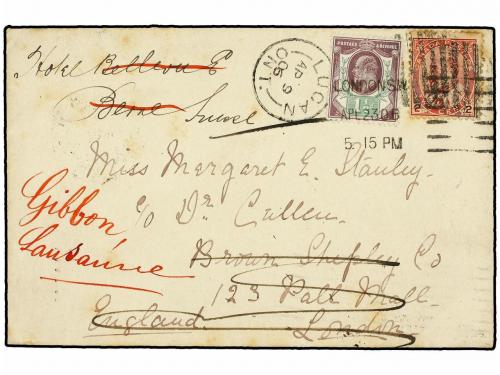 Hotel Bellevue
Berne Suisse
LUCAN
AP 9
05
ONT.
POSTAGE & REVENUE
LONDON S.W
APL 23 05
5. 15 PM
2 2
Miss Margaret E. Stanley.
c/o Dr Cullen.
Brown Shipley Co
123 Pall Mall.
England. London
Gibbon
Lausanne